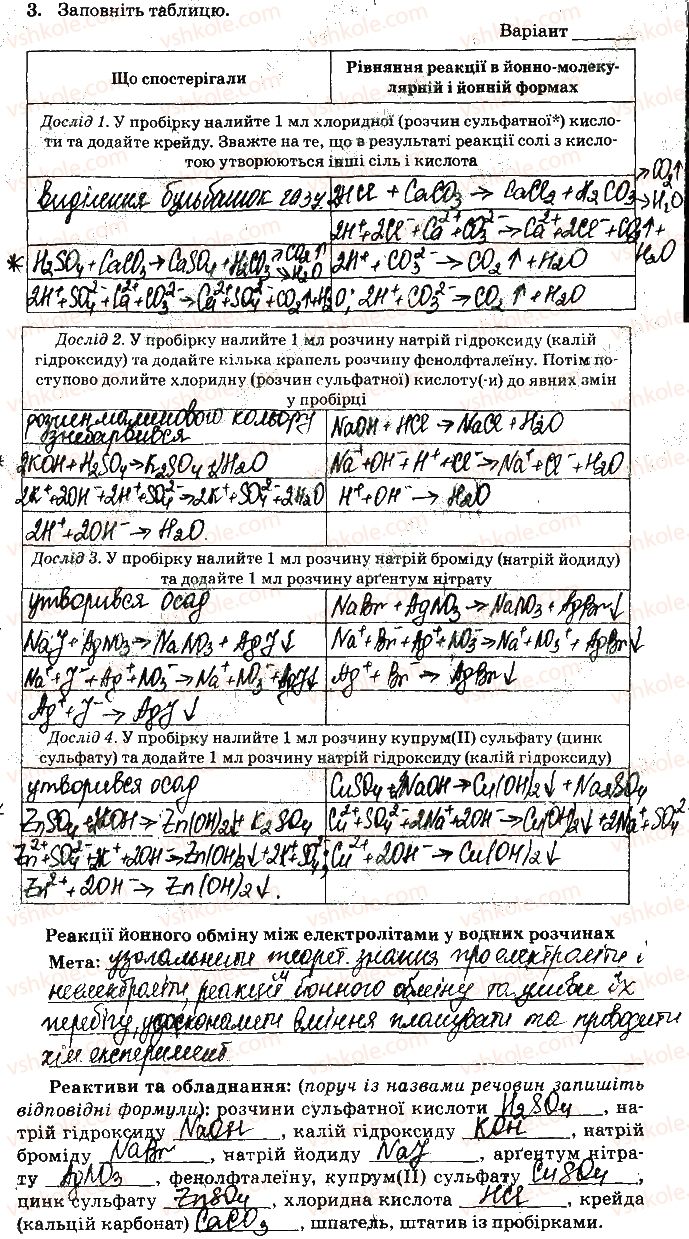 3. Заповніть таблицю.
Варіант
Що спостерігали
Рівняння реакції в йонно-молеку-
лярній і йонній формах
Дослід 1. У пробірку налийте 1 мл хлоридної (розчин сульфатної*) кисло-
ти та додайте крейду. Зважте на те, що в результаті реакції солі з кисло-
тою утворюються інші сіль і кислота
виділення бульбашок газу
2HCl + CaCO3 → CaCl2 + H2CO3 → CO2↑ → H2O
2H⁺+2Cl⁻+Ca²⁺+CO3²⁻→Ca²⁺+2Cl⁻+CO2↑+H2O
* H2SO4+CaCO3→CaSO4+H2CO3 → CO2↑ → H2O
2H⁺ + CO3²⁻ → CO2↑ + H2O
2H⁺+SO4²⁻+Ca²⁺+CO3²⁻→Ca²⁺+SO4²⁻+CO2↑+H2O; 2H⁺+CO3²⁻→CO2↑+H2O
Дослід 2. У пробірку налийте 1 мл розчину натрій гідроксиду (калій
гідроксиду) та додайте кілька крапель розчину фенолфталеїну. Потім по-
ступово долийте хлоридну (розчин сульфатної) кислоту(-и) до явних змін
у пробірці
розчин малинового кольору
знебарвився
NaOH + HCl → NaCl + H2O
* 2KOH+H2SO4→K2SO4+2H2O
Na⁺+OH⁻+H⁺+Cl⁻→Na⁺+Cl⁻+H2O
2K⁺+2OH⁻+2H⁺+SO4²⁻→2K⁺+SO4²⁻+2H2O
H⁺+OH⁻→H2O
2H⁺+2OH⁻→H2O.
Дослід 3. У пробірку налийте 1 мл розчину натрій броміду (натрій йодиду)
та додайте 1 мл розчину арґентум нітрату
утворився осад
NaBr + AgNO3→NaNO3 + AgBr↓
NaJ + AgNO3→NaNO3 + AgJ↓
Na⁺+Br⁻+Ag⁺+NO3⁻→Na⁺+NO3⁻+AgBr↓
Na⁺+J⁻+Ag⁺+NO3⁻→Na⁺+NO3⁻+AgJ↓
Ag⁺+Br⁻→AgBr↓
Ag⁺+J⁻→AgJ↓
Дослід 4. У пробірку налийте 1 мл розчину купрум(II) сульфату (цинк
сульфату) та додайте 1 мл розчину натрій гідроксиду (калій гідроксиду)
утворився осад
CuSO4+2NaOH→Cu(OH)2↓+Na2SO4
ZnSO4+2KOH→Zn(OH)2↓+K2SO4
Cu²⁺+SO4²⁻+2Na⁺+2OH⁻→Cu(OH)2↓+2Na⁺+SO4²⁻
Zn²⁺+SO4²⁻+2K⁺+2OH⁻→Zn(OH)2↓+2K⁺+SO4²⁻
Cu²⁺+2OH⁻→Cu(OH)2↓
Zn²⁺+2OH⁻→Zn(OH)2↓.
Реакції йонного обміну між електролітами у водних розчинах
Мета: узагальнити теорет. знання про електроліти і
неелектроліти, реакції йонного обміну та умови їх
перебігу, удосконалити вміння планувати та проводити
хім експеримент
Реактиви та обладнання: (поруч із назвами речовин запишіть
відповідні формули): розчини сульфатної кислоти H2SO4, на-
трій гідроксиду NaOH, калій гідроксиду KOH, натрій
броміду NaBr, натрій йодиду NaJ, арґентум нітра-
ту AgNO3, фенолфталеїну, купрум(II) сульфату CuSO4,
цинк сульфату ZnSO4, хлоридна кислота HCl, крейда
(кальцій карбонат) CaCO3, шпатель, штатив із пробірками.